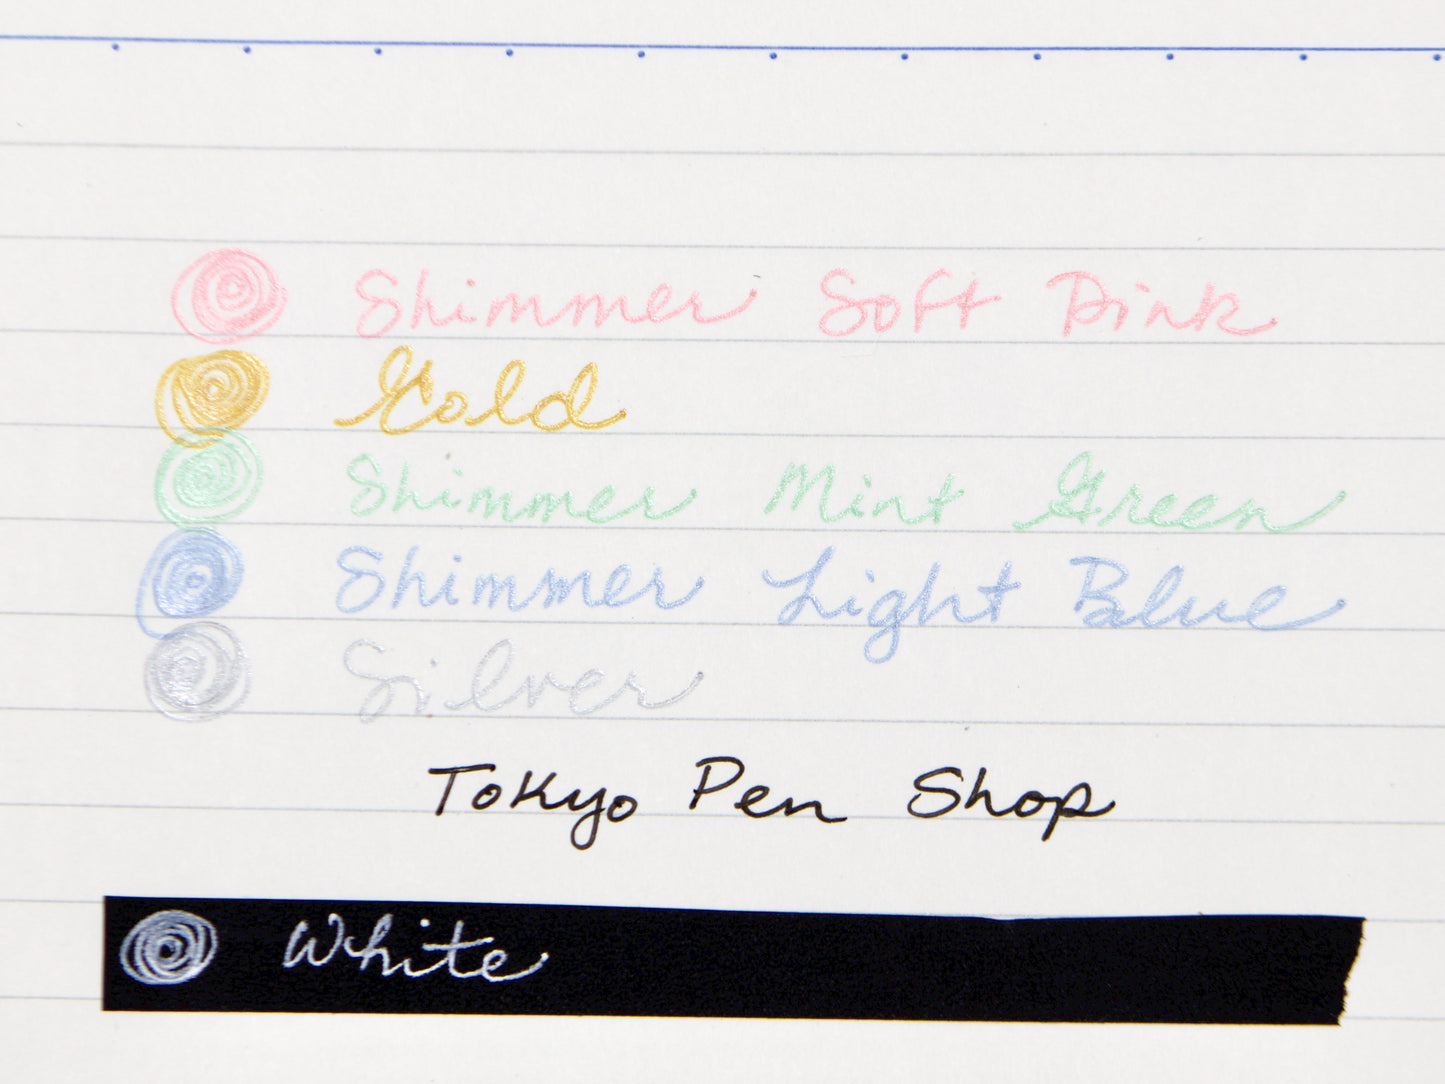 Shimmer Soft Pink
Gold
Shimmer Mint Green
Shimmer Light Blue
Silver
Tokyo Pen Shop
White